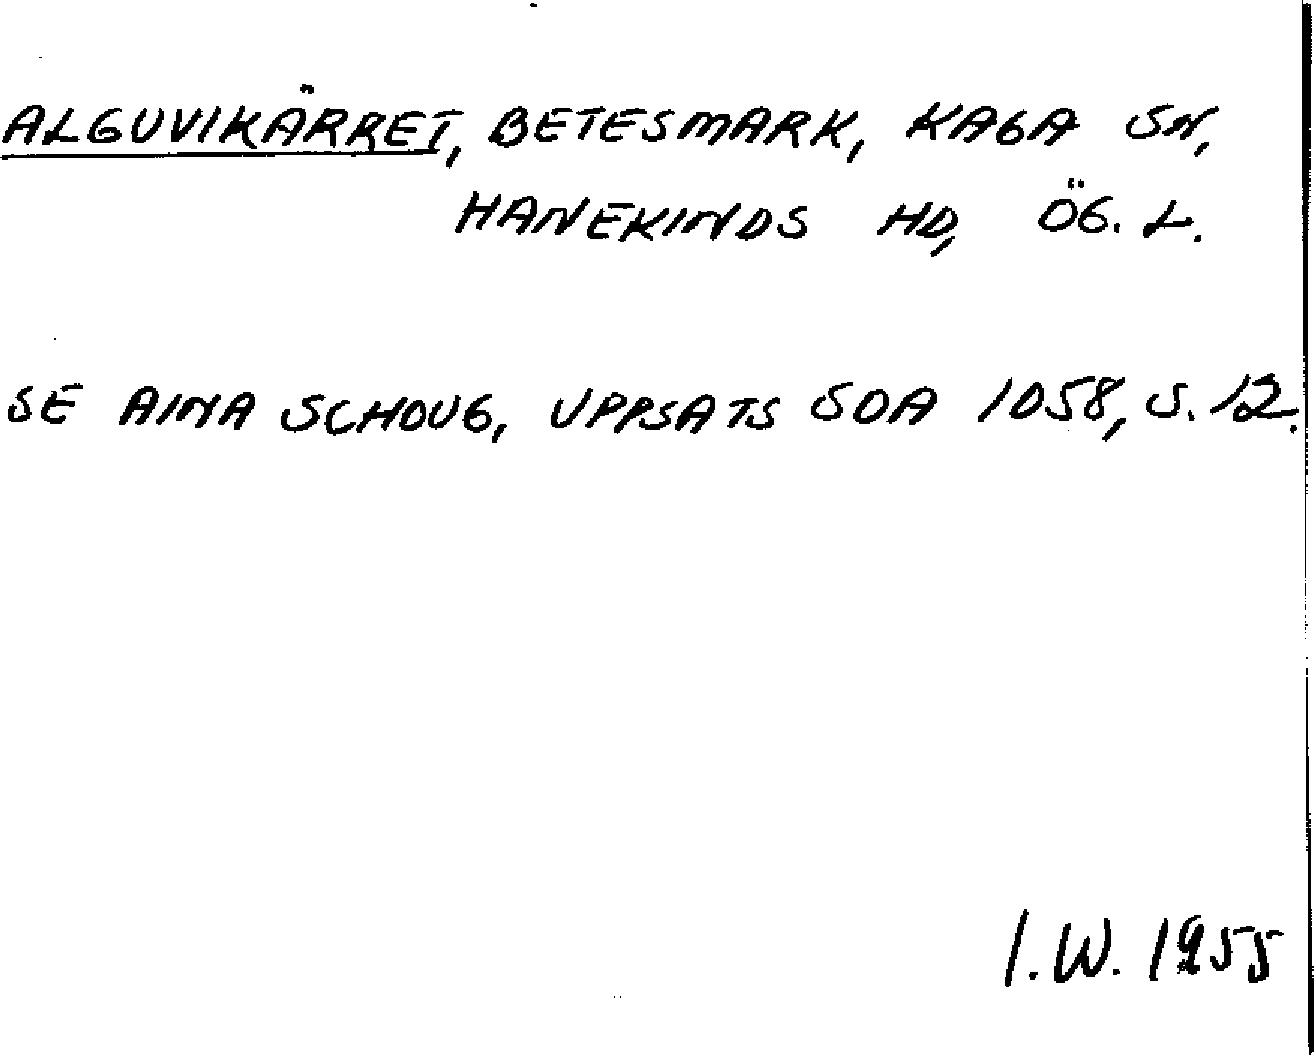 ALGUVIKÄRRET, BETESMARK, KAGA SN,
HANEKINDS HD, ÖG. L.
SE AINA SCHOUG, UPPSATS SOA 1058, S. 12.
I. W. 1955